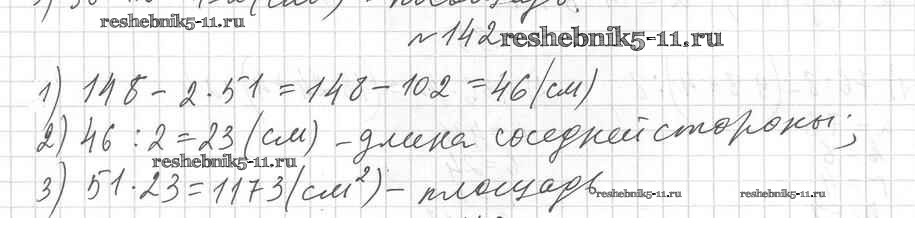 reshebnik5-11.ru
№ 142 reshebnik5-11.ru
1) 148 - 2 · 51 = 148 - 102 = 46 (см)
2) 46 : 2 = 23 (см) - длина соседней стороны;
reshebnik5-11.ru
3) 51 · 23 = 1173 (см²) - площадь
reshebnik5-11.ru reshebnik5-11.ru